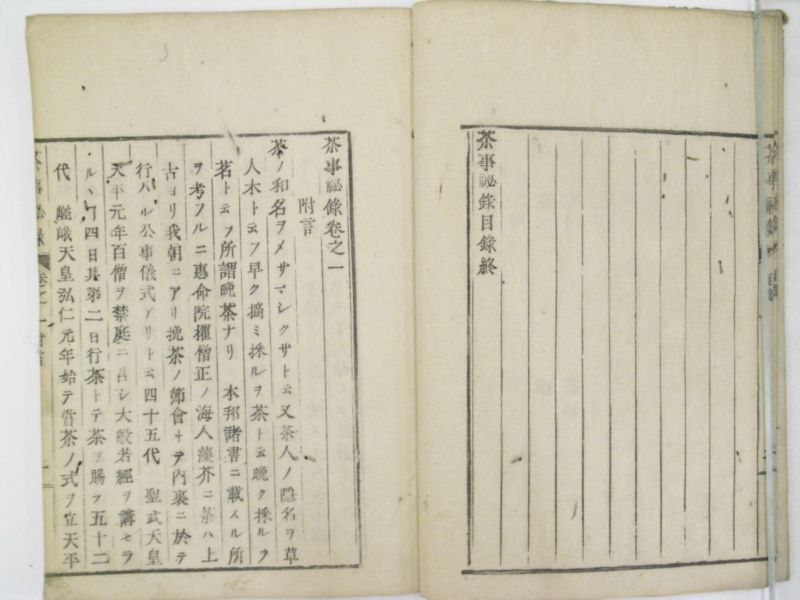 茶事祕錄目錄終
茶事祕錄卷之一
附言
茶ノ和名ヲメサマシクサト云又茶人ノ隠名ヲ草
人木ト云フ早ク摘ミ採ルヲ茶ト云晩ク採ルヲ
茗ト云フ所謂晩茶ナリ 本邦諸書ニ載スル所
ヲ考フルニ惠命院權僧正ノ海人藻芥ニ茶ハ上
古ヨリ我朝ニアリ挽茶ノ節會トテ內裏ニ於テ
行ハル公事儀式アリト云四十五代 聖武天皇
天平元年百僧ヲ禁庭ニ召シ大般若經ヲ講セラ
ルヽ丁四日其第二日行茶トテ茶ヲ賜フ五十二
代 嵯峨天皇弘仁元年始テ嘗茶ノ式ヲ立天平
茶事祕錄 卷之一附言